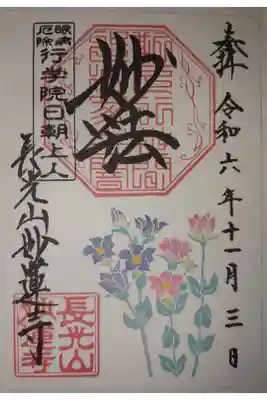 奉拝
令和六年十一月三日
妙法
眼病
厄除
行学院日朝上人
長光山妙蓮寺
長光山
妙蓮寺